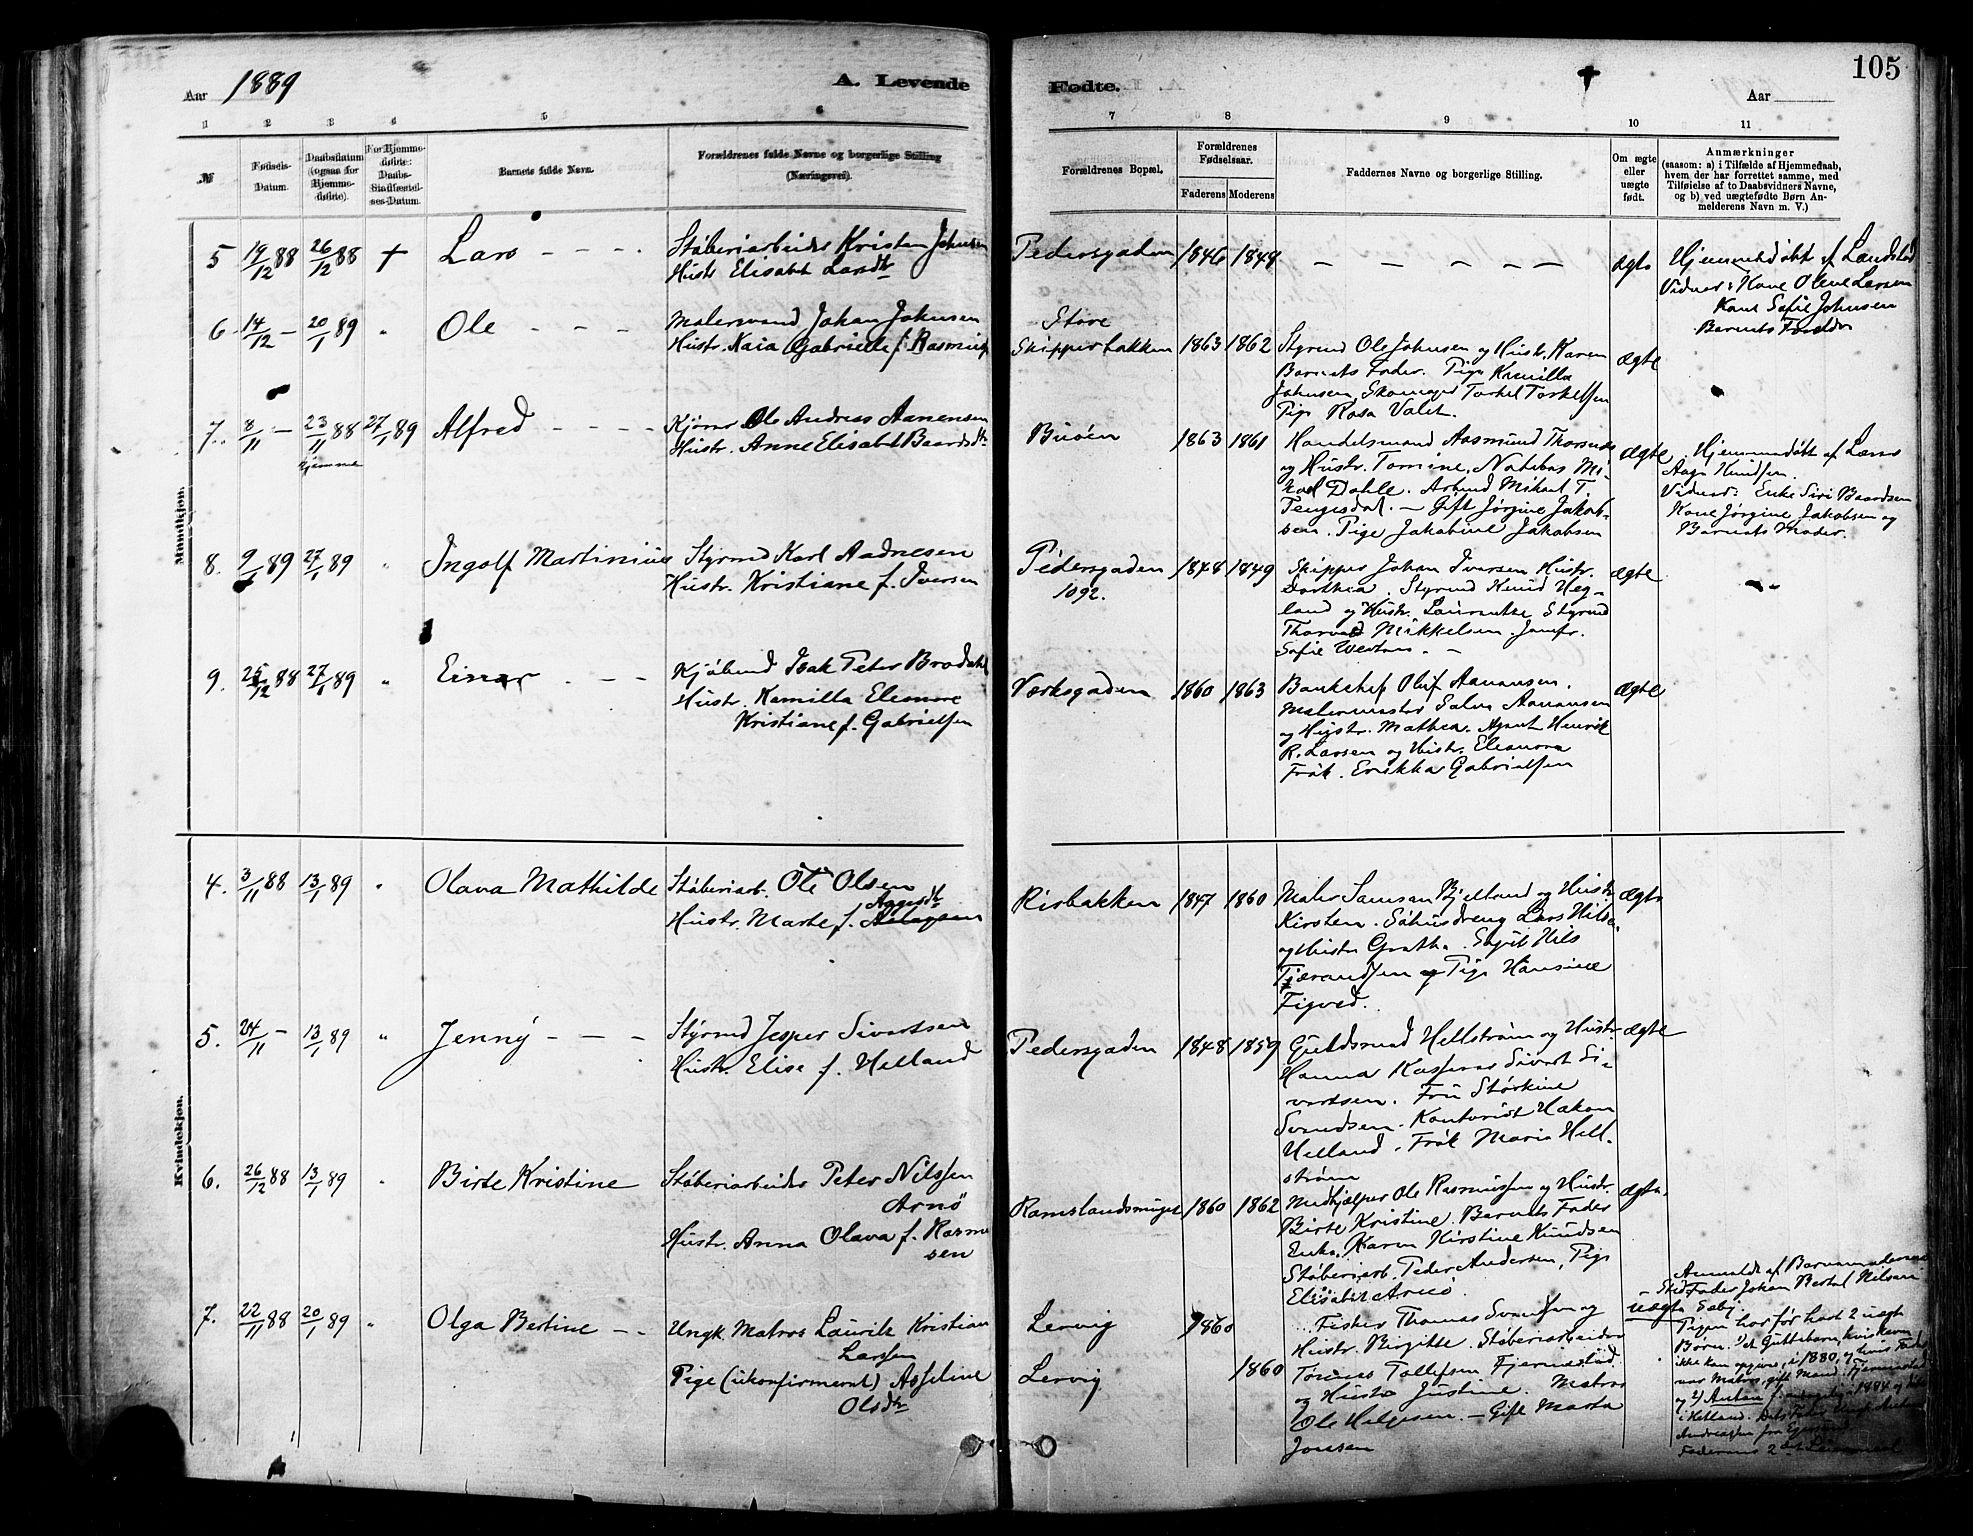 Aar 1889
A. Levende
Fødte.
Aar
105
1 2 3 4 5 6 7 8 9 10 11
№
Fødsels-
Datum.
Daabsdatum
(ogsaa for
Hjemme-
døbte).
For Hjemme-
døbte:
Daabs-
Stadfæstel-
ses-Datum.
Barnets fulde Navn.
Forældrenes fulde Navne og borgerlige Stilling
(Næringsvei).
Forældrenes Bopæl.
Forældrenes
Fødselsaar.
Faderens Moderens
Faddernes Navne og borgerlige Stilling.
Om ægte
eller
uægte
født.
Anmærkninger
(saasom: a) i Tilfælde af Hjemmedaab,
hvem der har forrettet samme, med
Tilføielse af to Daabsvidners Navne,
og b) ved uægtefødte Børn An-
melderens Navn m. V.)
Mandkjøn.
5 19/12 88 26/12 88 + Lars
Støberiarbeider Kristen Johnsen
Hustr. Elisabet Larsdtr
Pedersgaden 1846 1848 — — — — —
ægte
Hjemmedøbt af Landstad
Vidner: Kone Olene Larsen
Kone Sofie Johnsen
Barnets Forældre
6 14/12 — 20/1 89 " Ole
Malersvend Johan Johnsen
Hustr. Kaia Gabrielle f. Rasmus
Store
Skipperbakken 1863 1862
Styrmd Ole Johnsen og Hustr. Karen
Barnets Fader. Pige Kamilla
Johnsen, Skomager Torkel Torkelsen
Pige Rosa Valet.
ægte
7. 8/11 — 23/11 88 27/1 89 Alfred
Hjemme
Kjører Ole Andreas Aanensen
Hustr. Anne Elisabet Baardsdtr
Buøen 1863 1861
Handelsmand Aasmund Thorsnæs
og Hustr. Tomine, Notebas Mi-
kal Dahle. Arbmd Mikael T.
Tengesdal. — Gift Jørgine Jakob-
sen. Pige Jakobine Jakobsen
ægte
Hjemmedøbt af Lærer
Aage Knudsen
Vidner: Enke Siri Baardsen
Kone Jørgine Jakobsen og
Barnets Moder.
8. 9/1 89 27/1 89 " Ingolf Martinius
Styrmd Karl Aadnesen
Hustr. Kristiane f. Iversen
Pedersgaden
1092.
1848 1849
Skipper Johan Iversen Hustr.
Dorthea. Styrmd Knud Heg-
land og Hustr. Laurentse Styrmd
Thorvald Mikkelsen. Jomfr.
Sofie
ægte
9. 25/12 88 27/1 89 " Einar
Kjøbmd Isak Peter Brodahl
Hustr. Kamilla Eleonore
Kristiane f. Gabrielsen
Værksgaden 1860 1863
Bankchef Oluf Aanensen.
Malermester Salve Aanensen
og Hustr. Mathea. Agent Henrik
R. Larsen og Hustr. Eleanora
Frøk. Erikka Gabrielsen
ægte
Kvindekjøn.
4. 3/11 88 13/1 89 " Olava Mathilde
Støberiarb. Ole Olsen
Aagesdtr
Hustr. Marte f.
Kirbakken 1847 1860
Maler Samson Bjelland og Hustr.
Kirsten. Søhusdreng Lars Nilsen
og Hustr. Grethe.
Tjerandsen og Pige Hansine
Figved.
ægte
5. 24/11 — 13/1 89 " Jenny
Styrmd Jesper Sivertsen
Hustr. Elise f. Helland
Pedersgaden 1848 1859
Guldsmed Hellstrøm og Hustr.
Hanna Kasserer Sivert Si-
vertsen. Fru Størkine
Svendsen. Kontorist Hakon
Helland. Frøk Maria Hell-
strøm
ægte
6. 26/12 88 13/1 89 " Birte Kristine
Støberiarbeider Peter Nilssen
Arnø
Hustr. Anna Olava f. Rasmu
sen
Ramslandsmuget 1860 1862
Medhjælper Ole Rasmussen og Hustr.
Birte Kristine. Barnets Fader
Enke. Karen Kirstine Knudsen
Støberiarb. Peder Andersen, Pige
Elisabet Arnø.
ægte
7. 22/11 88 20/1 89 " Olga Bertine
Ungk. Matros Laurits Kristian
Larsen
Pige (ukonfirmeret) Asseline
Olsdtr
Lervig 1860
Lervig 1860
Fisker Thomas Svendsen og
Hustr. Birgitte. Støberiarbeider
Tønnes Tollefsen Fjermestad
og Hustr Justine. Matros
Ole Helgesen. — Gift Marta
Jonsen
uægte
Anmeldt af Barnemoderens
Stedfader Johan Bertal Nilsen
Pigen har før havt 2 uægte
Børn. 1) et Guttebarn, hvis Navn
ikke kan opgives, i 1880, og hvis Fader
var Matros, gift Mand
og 2) Anton f. i 1884
i Hetland. Dets Fader Ungk. Anton
Andreassen fra
Faderens 2det Leiermaal